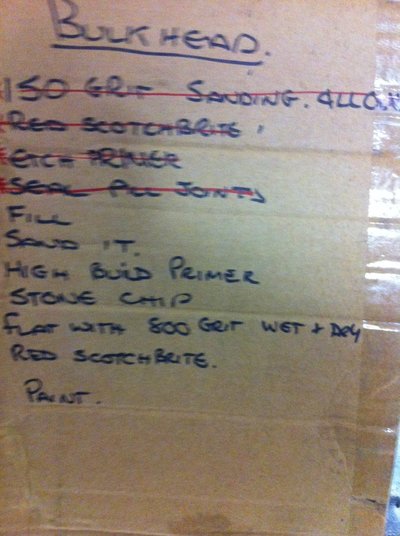 BULKHEAD.
150 GRIT SANDING. ALLO
RED SCOTCHBRITE.
ETCH PRIMER
SEAL ALL JOINTS
FILL
SAND IT.
HIGH BUID PRIMER
STONE CHIP
FLAT WITH 800 GRIT WET + DRY
RED SCOTCHBRITE.
PAINT.